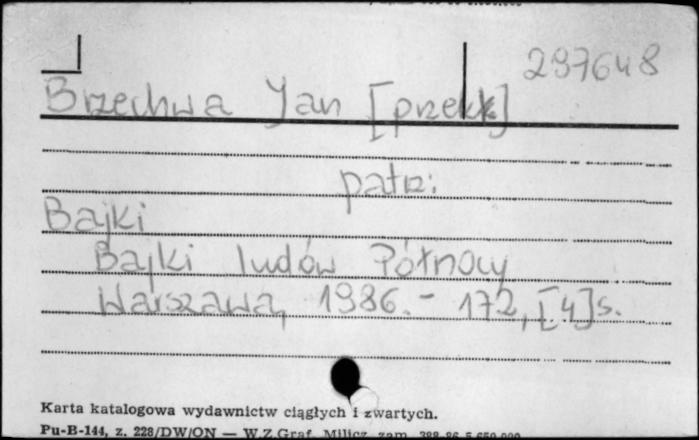 297648
Brzechwa Jan [przekł.]
patrz:
Bajki
Bajki ludów Północy
Warszawa, 1986. - 172, [4] s.
Karta katalogowa wydawnictw ciągłych i zwartych.
Pu-B-144, z. 228/DW/ON — W.Z.Graf. Milicz, zam.